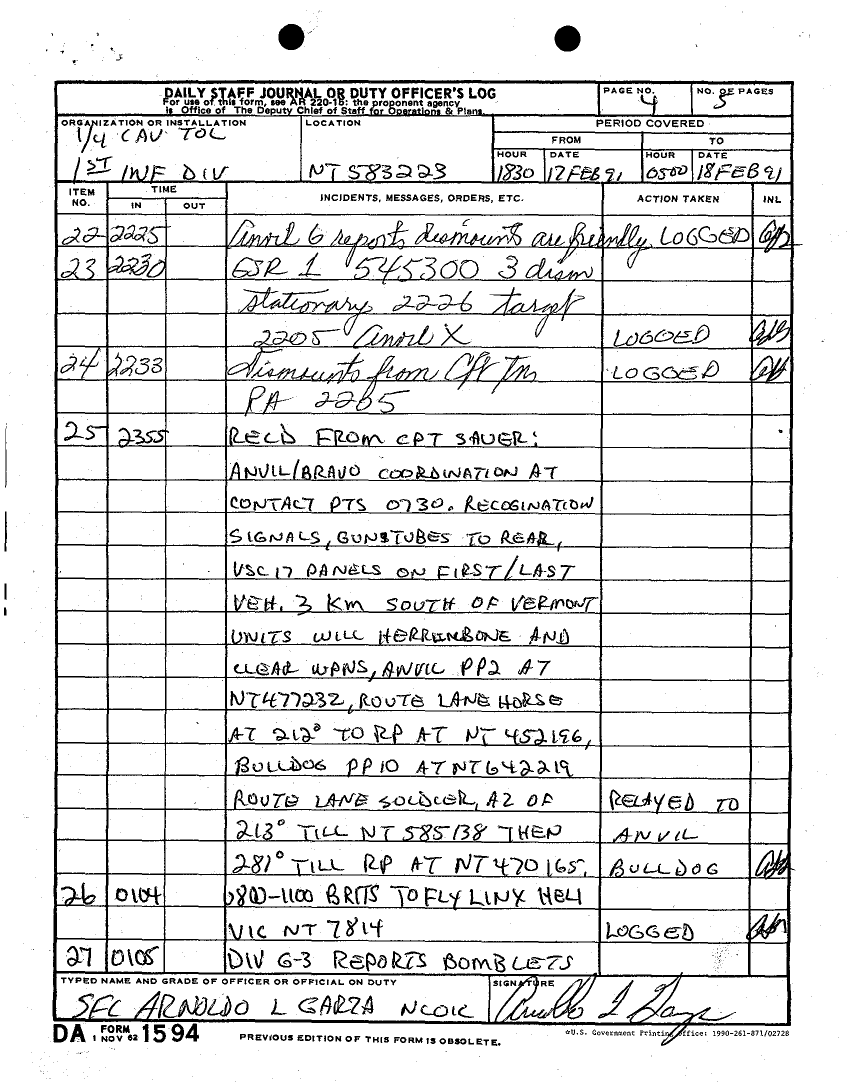 DAILY STAFF JOURNAL OR DUTY OFFICER'S LOG
For use of this form, see AR 220-15: the proponent agency
is Office of The Deputy Chief of Staff for Operations & Plans.
PAGE NO.
4
NO. OF PAGES
5
ORGANIZATION OR INSTALLATION
1/4 CAV TOC
1ST INF DIV
LOCATION
NT 583223
PERIOD COVERED
FROM
TO
HOUR
1830
DATE
17 FEB 91
HOUR
0500
DATE
18 FEB 91
ITEM NO.
TIME
IN
OUT
INCIDENTS, MESSAGES, ORDERS, ETC.
ACTION TAKEN
INL
22 2225 Anvil 6 reports dismounts are friendly. LOGGED
23 2230 GSR 1 545300 3 dism
stationary 2226 target
2205 Anvil X LOGGED
24 2233 Dismounts from Cft Tm LOGGED
PA 2205
25 2355 REC'D FROM CPT SAUER:
ANVIL/BRAVO COORDINATION AT
CONTACT PTS 0730. RECOGINATION
SIGNALS, GUNSTUBES TO REAR,
VSC17 PANELS ON FIRST/LAST
VEH. 3 KM SOUTH OF VERMONT
UNITS WILL HERRINBONE AND
CLEAR WPNS, ANVIL PP2 AT
NT477232, ROUTE LANE HORSE
AT 212° TO RP AT NT 452196,
BULLDOG PP10 AT NT642219
ROUTE LANE SOLDIER, AZ OF RELAYED TO
213° TILL NT 585138 THEN ANVIL
281° TILL RP AT NT 470165. BULLDOG
26 0104 0800-1100 BRITS TO FLY LINX HELI
VIC NT 7814 LOGGED
27 0105 DIV G-3 REPORTS BOMBLETS
TYPED NAME AND GRADE OF OFFICER OR OFFICIAL ON DUTY
SFC ARNOLDO L GARZA NCOIC
SIGNATURE
DA FORM 1594
1 NOV 62
PREVIOUS EDITION OF THIS FORM IS OBSOLETE.
U.S. Government Printing Office: 1990-261-871/02728